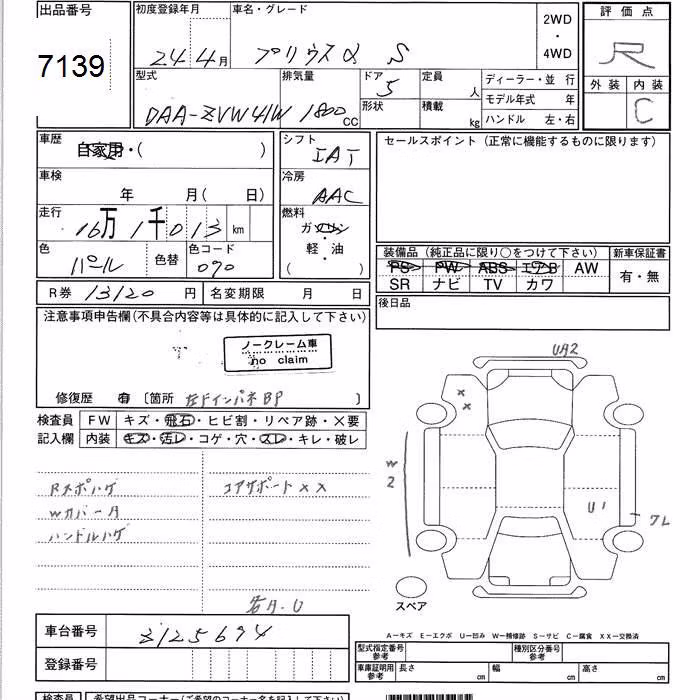 出品番号
7139
初度登録年月
24年4月
車名・グレード
プリウスα S
2WD
・
4WD
評価点
R
外装 内装
C
型式
DAA-ZVW41W
排気量
1800cc
ドア
5
形状
定員
人
積載
kg
ディーラー・並 行
モデル年式 年
ハンドル 左・右
車歴
自家用・( )
車検
年 月( 日)
走行
16万1千013km
色
パール
色替
色コード
070
シフト
IAT
冷房
AAC
燃料
ガソリン
・
軽・油
( )
セールスポイント(正常に機能するものに限ります)
装備品(純正品に限り○をつけて下さい) 新車保証書
PS PW ABS エアB AW 有・無
SR ナビ TV カワ
R券 13120円 名変期限 月 日
後日品
注意事項申告欄(不具合内容等は具体的に記入して下さい)
ノークレーム車
no claim
修復歴 有 〔箇所 左ドインパネBP 〕
検査員 FW キズ・飛石・ヒビ割・リペア跡・×要
記入欄 内装 キズ・汚レ・コゲ・穴・スレ・キレ・破レ
Rスポハゲ
Wカバー片
ハンドルハゲ
コアサポートXX
各A.U
UA2
X
X
W
2
U1
ワレ
スペア
車台番号 3125694
登録番号
A－キズ E－エクボ U－凹み W－補修跡 S－サビ C－腐食 XX－交換済
型式指定番号
参考
種別区分番号
参考
車庫証明用
参考
長さ cm 幅 cm 高さ cm
検査員 希望出品コーナー(ご希望のコーナー名を記入下さい)